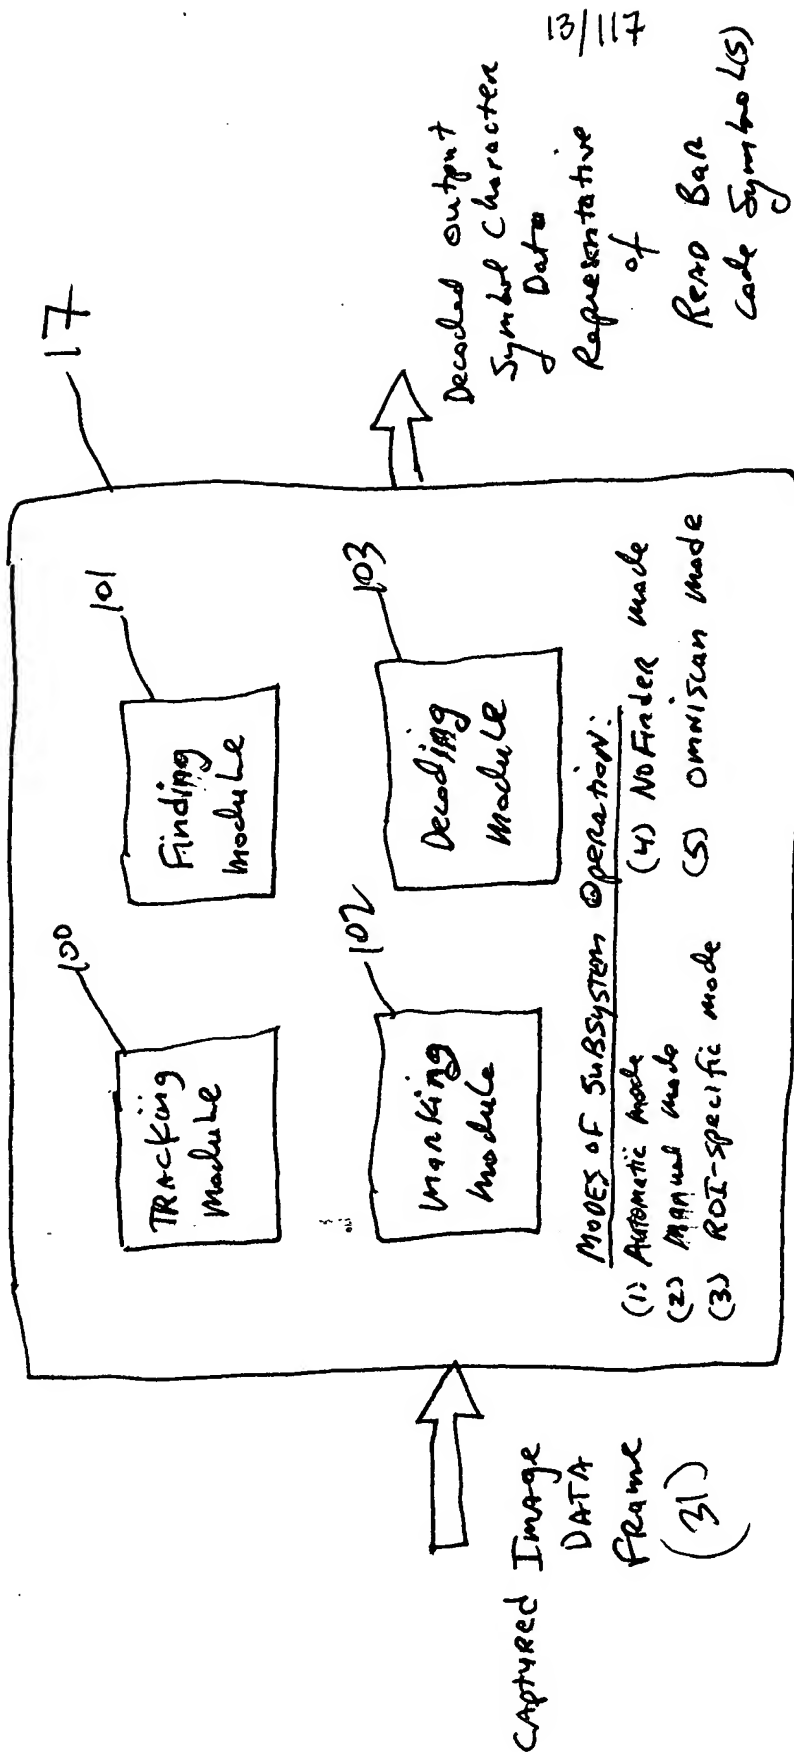 13/117
17
100
TRACKing
Module
101
Finding
Module
102
Marking
Module
103
Decoding
Module
MODES OF SUBSYSTEM Operation:
(1) Automatic mode
(2) Manual mode
(3) ROI-specific mode
(4) NOFinder mode
(5) OMNISCAN mode
CAPTURED Image
DATA
FRAME
(31)
Decoded output
Symbol Character
Data
Representative
of
READ BAR
Code Symbol(s)